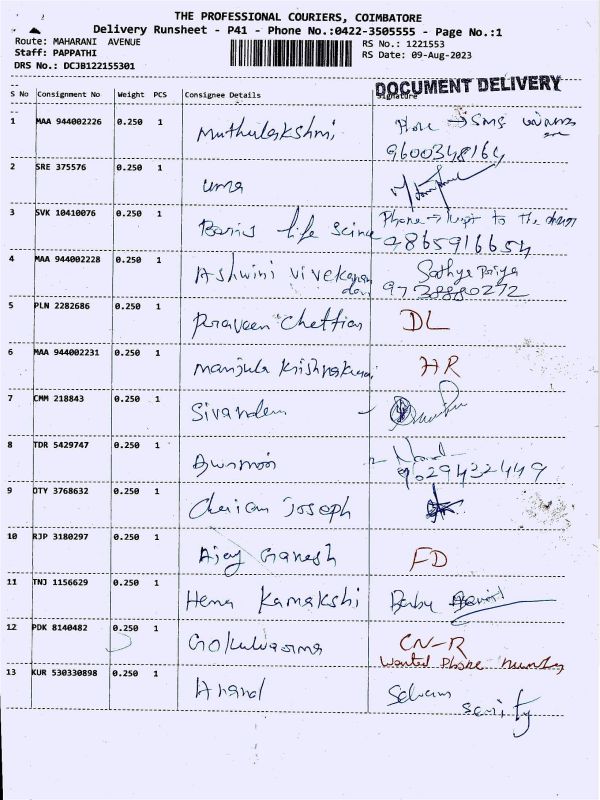 THE PROFESSIONAL COURIERS, COIMBATORE
Delivery Runsheet - P41 - Phone No.:0422-3505555 - Page No.:1
Route: MAHARANI AVENUE
RS No.: 1221553
Staff: PAPPATHI
RS Date: 09-Aug-2023
DRS No.: DCJB122155301
DOCUMENT DELIVERY
S No Consignment No Weight PCS Consignee Details Signature
1 MAA 944002226 0.250 1 Muthulakshmi Phone → SMS
9600348164
2 SRE 375576 0.250 1 uma
3 SVK 10410076 0.250 1 life Science Phone → kept to the
9865916654
4 MAA 944002228 0.250 1 Ashwini Vivekanan Sathya Priya
devi 9738880272
5 PLN 2282686 0.250 1 Praveen Chettian DL
6 MAA 944002231 0.250 1 Manjula Krishnakumar HR
7 CMM 218843 0.250 1
8 TDR 5429747 0.250 1
9629432449
9 OTY 3768632 0.250 1 Cherian Joseph
10 RJP 3180297 0.250 1 Ajay Ganesh FD
11 TNJ 1156629 0.250 1 Hema Kamakshi Baby
12 PDK 8140482 0.250 1 Gokulvarma CN-R
Wanted Phone number
13 KUR 530330898 0.250 1 Anand Selvam